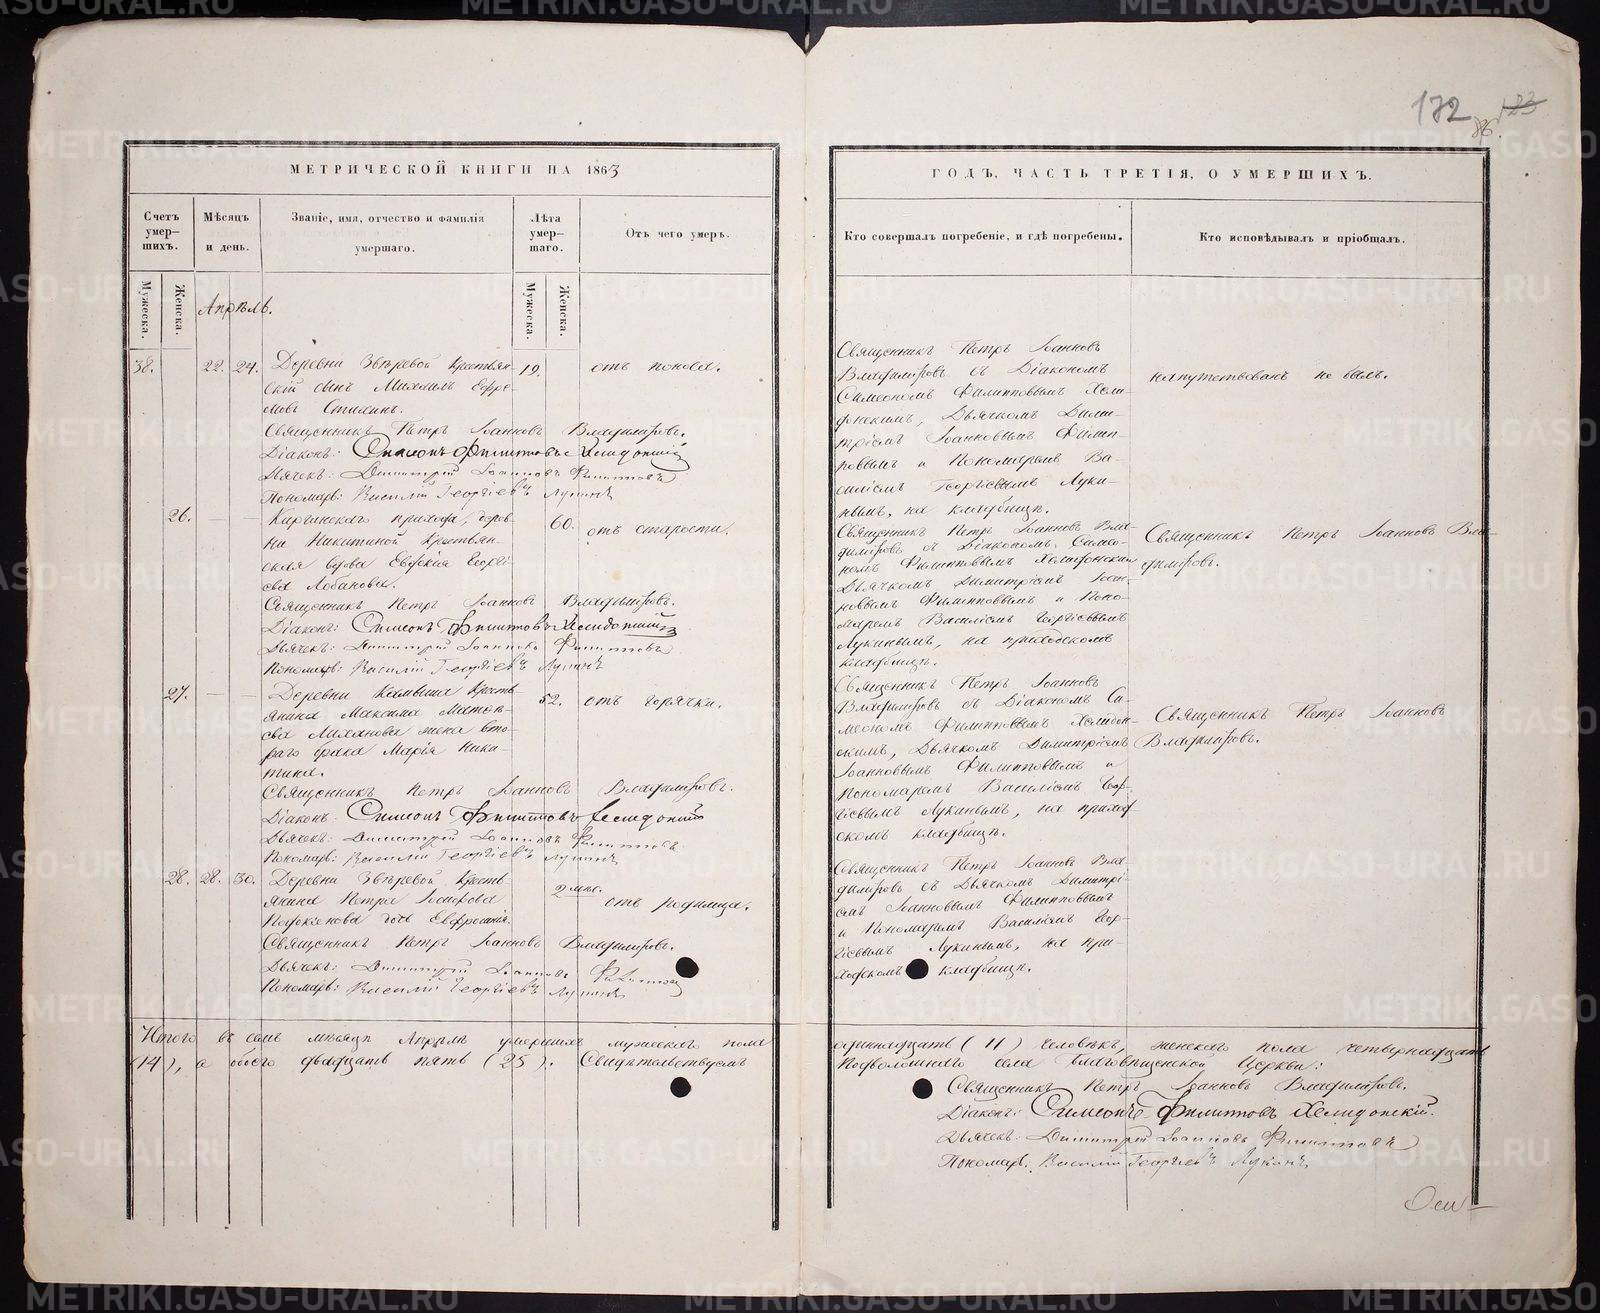 172 86. 123
МЕТРИЧЕСКОЙ КНИГИ НА 1863
ГОДЪ, ЧАСТЬ ТРЕТІЯ, О УМЕРШИХЪ.
Счетъ умер–шихъ.
Мѣсяцъ и день.
Званіе, имя, отчество и фамилія умершаго.
Лѣта умер–шаго.
Отъ чего умеръ.
Кто совершалъ погребеніе, и гдѣ погребены.
Кто исповѣдывалъ и пріобщалъ.
Мужеска.
Женска.
Мужеска.
Женска.
Апрѣль.
38. 22. 24.
Деревни Звѣревой крестьян-
скій сынъ Михаилъ Ефре-
мовъ Стихинъ.
19.
отъ поноса.
Священникъ Петръ Іоанновъ Владиміровъ.
Діаконъ: Симеонъ Филипповъ Хелидонскій
Дьячекъ: Димитрій Іоанновъ Филипповъ
Пономарь: Василій Георгіевъ Лукинъ
Священникъ Петръ Іоанновъ
Владиміровъ съ Діакономъ
Симеономъ Филипповымъ Хели-
донскимъ, Дьячкомъ Дими-
тріемъ Іоанновымъ Филип-
повымъ и Пономаремъ Ва-
силіемъ Георгіевымъ Луки-
нымъ, на кладбищѣ.
напутствованъ не былъ.
26. — —
Киргинскаго прихода, дерев-
ни Никитиной крестьян-
ская вдова Евдокія Георгі-
ева Лобанова.
60.
отъ старости.
Священникъ Петръ Іоанновъ Владиміровъ.
Діаконъ: Симеонъ Филипповъ Хелидонскій
Дьячекъ: Димитрій Іоанновъ Филипповъ
Пономарь: Василій Георгіевъ Лукинъ
Священникъ Петръ Іоанновъ Вла-
диміровъ съ Діакономъ Симео-
номъ Филипповымъ Хелидонскимъ
Дьячкомъ Димитріемъ Іоан-
новымъ Филипповымъ и Поно-
маремъ Василіемъ Георгіевымъ
Лукинымъ, на приходскомъ
кладбищѣ.
Священникъ Петръ Іоанновъ Вла-
диміровъ.
27. — —
Деревни Камыша кресть-
янина Максима Матве-
ева Лиханова жена вто-
раго брака Марія Ники-
тина.
52.
отъ горячки.
Священникъ Петръ Іоанновъ Владиміровъ.
Діаконъ: Симеонъ Филипповъ Хелидонскій
Дьячекъ: Димитрій Іоанновъ Филипповъ
Пономарь: Василій Георгіевъ Лукинъ
Священникъ Петръ Іоанновъ
Владиміровъ съ Діакономъ Си-
меономъ Филипповымъ Хелидон-
скимъ, Дьячкомъ Димитріемъ
Іоанновымъ Филипповымъ и
Пономаремъ Василіемъ Геор-
гіевымъ Лукинымъ, на приход-
скомъ кладбищѣ.
Священникъ Петръ Іоанновъ
Владиміровъ.
28. 28. 30.
Деревни Звѣревой кресть-
янина Петра Іосифова
дочь Евфросинія.
2 мѣс.
отъ родимца.
Священникъ Петръ Іоанновъ Владиміровъ.
Дьячекъ: Димитрій Іоанновъ Филипповъ
Пономарь: Василій Георгіевъ Лукинъ
Священникъ Петръ Іоанновъ Вла-
диміровъ съ Дьячкомъ Димитрі-
емъ Іоанновымъ Филипповымъ
и Пономаремъ Василіемъ Геор-
гіевымъ Лукинымъ, на при-
ходскомъ кладбищѣ.
Итого въ семъ мѣсяцѣ Апрѣлѣ умершихъ мужескаго пола одинадцать (11) человѣкъ, женскаго пола четырнадцать
(14), а обоего двадцать пять (25). Свидѣтельствуемъ Подволошнаго села Благовѣщенской Церкви:
Священникъ Петръ Іоанновъ Владиміровъ.
Діаконъ: Симеонъ Филипповъ Хелидонскій.
Дьячекъ: Димитрій Іоанновъ Филипповъ
Пономарь: Василій Георгіевъ Лукинъ
METRIKI.GASO-URAL.RU